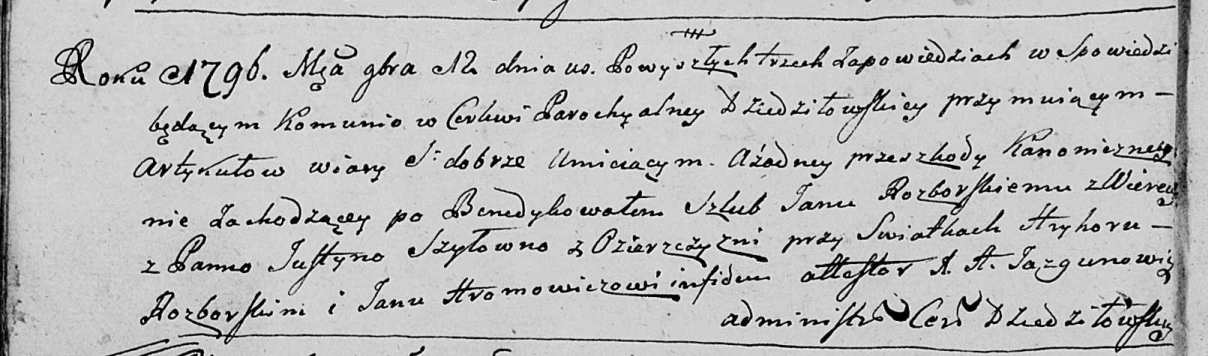 Roku 1796. Mca 9bra 12 dnia us. Powyszłych trzech Zapowiedziach w Spowiedzi
będącym Komunio w Cerkwi Parochyalney Dziedziłowskiey przymuiącym –
Artykułow wiary S: dobrze Umieiącym. Ażadney przeszkody Kanoniczney
nie zachodzącey po Benedykowałem Szlub Janu Rozborskiemu z
z Panno Justyno Szyłowno z Ozierzczyzni przy Swiatkach Hryhoru –
Rozborskim i Janu Hromowiczowi infidem attestor X. A. Jazgunowicz
administr Cer Dziedziłowskiy